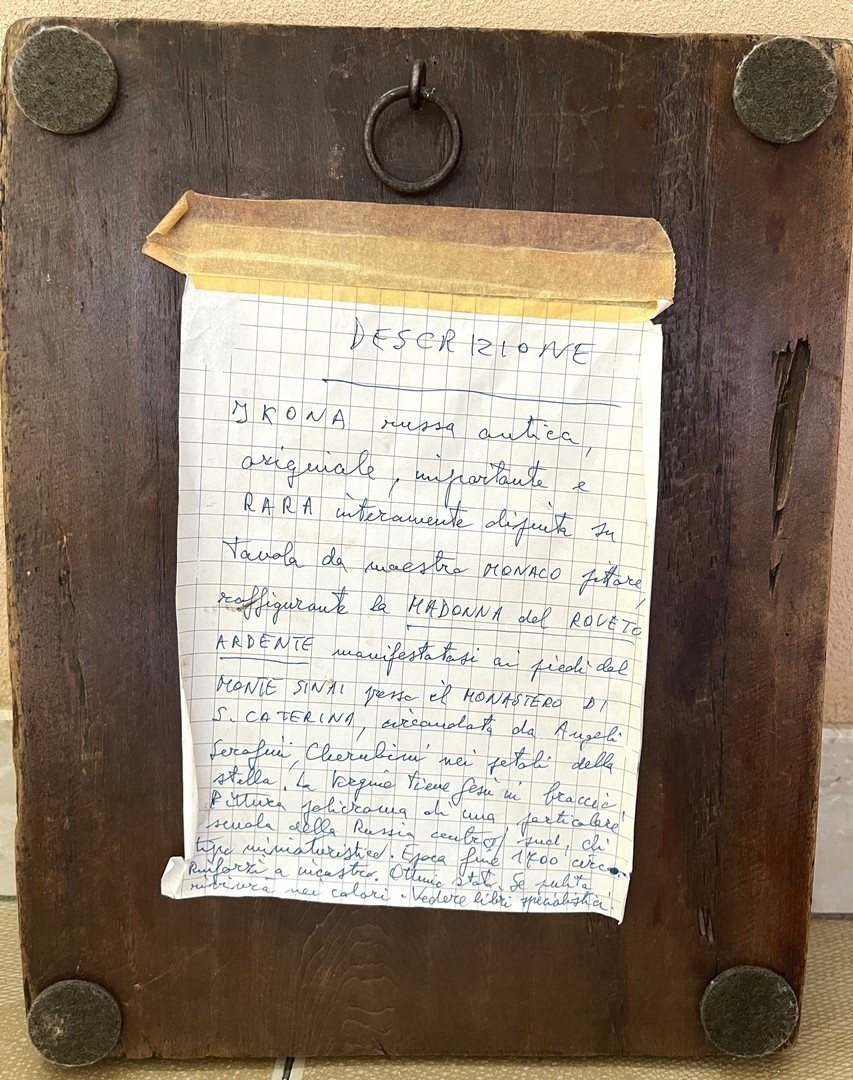 DESCRIZIONE
IKONA russa antica,
originale, importante e
RARA interamente dipinta su
tavola da maestro MONACO pittore,
raffigurante la MADONNA del ROVETO
ARDENTE manifestatasi ai piedi del
MONTE SINAI presso il MONASTERO DI
S. CATERINA, circondata da Angeli
Serafini, Cherubini nei petali della
stella. La Vergine tiene Gesù in braccio
Pittura policroma di una particolare
scuola della Russia centro/sud, di
tipo miniaturistico. Epoca fine 1700 circa.
Rinforzi a incastro. Ottimo stato. Se pulita
rivivrà nei colori. Vedere libri specialistici.